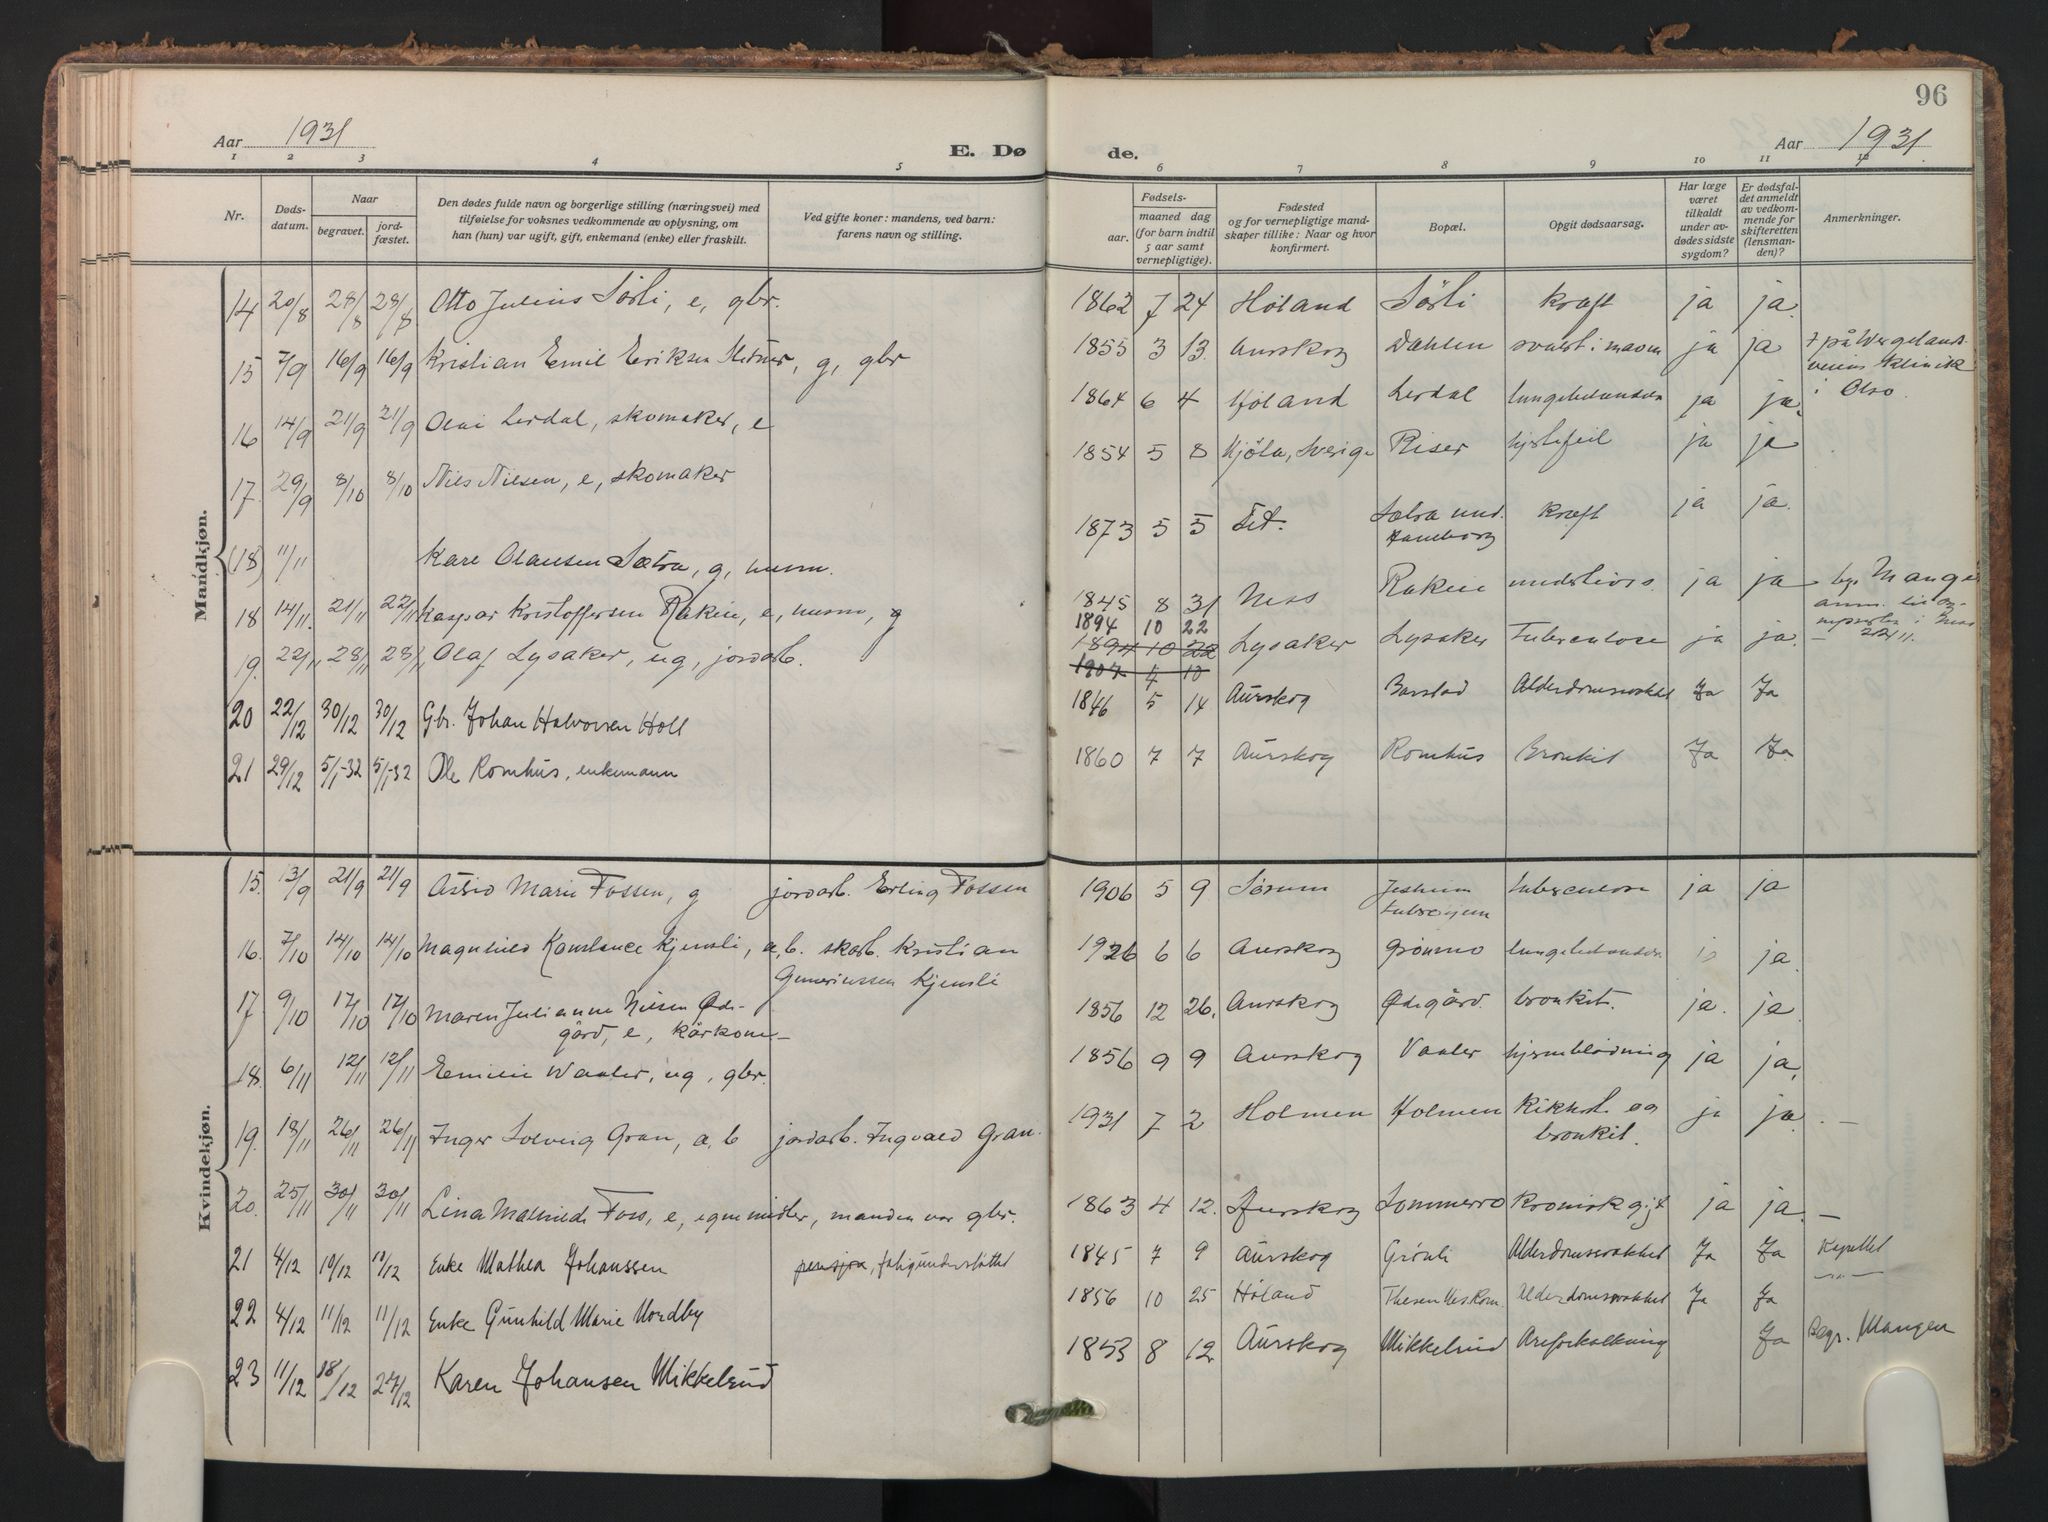 96
Aar 1931
E. Dø
de.
Aar 1931.
1 2 3 4 5 6 7 8 9 10 11 12
Nr.
Døds-
datum.
Naar
begravet.
jord-
fæstet.
Den dødes fulde navn og borgerlige stilling (næringsvei) med
tilføielse for voksnes vedkommende av oplysning, om
han (hun) var ugift, gift, enkemand (enke) eller fraskilt.
Ved gifte koner: mandens, ved barn:
farens navn og stilling.
Fødsels-
aar.
maaned dag
(for barn indtil
5 aar samt
vernepligtige).
Fødested
og for vernepligtige mand-
skaper tillike: Naar og hvor
konfirmert.
Bopæl.
Opgit dødsaarsag.
Har læge
været
tilkaldt
under av-
dødes sidste
sygdom?
Er dødsfal-
det anmeldt
av vedkom-
mende for
skifteretten
(lensman-
den)?
Anmerkninger.
Mandkjøn.
14 20/8 28/8 28/8 Otto Julius Sørli, e, gbr. 1862 7 24 Høland Sørli kræft ja ja.
15 7/9 16/9 16/9 Kristian Emil Eriksen, g, gbr 1855 3 13. Aurskog Dæhlen svulst i maven ja ja † på Wergelands-
veiens Klinikk
i Olso.
16 14/9 21/9 21/9 Olai Lerdal, skomaker, e 1864 6 4 Høland Lerdal ja ja.
17. 29/9 8/10 8/10 Nils Nilsen, e, skomaker 1854 5 8 Kjöla, Sverige Riser hjertefeil ja ja
(18) 11/11 Kare Olausen Sætra, g, husm. 1873 5 5 Fet. Sætra und. kræft ja ja.
18 14/11. 21/11 22/11 Kaspar Kristoffersen Rakeie, e, husm, g 1845 8 31 Ness Rakeie ja ja
19. 22/11 28/11 28/11 Olaf Lysaker, ug, jordarb. 1894 10 22
1894 10 22 Lysaker Lysaker Tuberculose ja ja.
1907 4 10
20 22/12 30/12 30/12 Gbr. Johan Halvorsen Holl 1846 5 14 Aurskog Barstad Alderdomssvakhet Ja Ja
21 29/12 5/1-32 5/1-32 Ole Romhus, enkemann 1860 7 7 Aurskog Romhus Bronkit Ja Ja.
Kvindekjøn.
15. 13/9 21/9 21/9 Marie Fossen, g jordarb. Erling Fossen 1906 5 9 Sørum Jesheim tuberculose ja ja
16. 7/10 14/10 14/10 Magnhild Konstance Kjensli, a, b. skarb. Kristian 1926 6 6 Aurskog Grønmo ja.
Kjensli
17 9/10 17/10 17/10 Maren Julianne Nilsen Øde- 1856 12 26. Aurskog Ødegård. bronkit. ja. ja.
gård, e, kårkone
18. 6/11 12/11 12/11 Emilie Waaler, ug, gbr. 1856 9 9 Aurskog Vaaler hjerneblødning ja ja.
19. 18/11 26/11 26/11 Inger Solveig Gran, a, b jordarb. Ingvald Gran. 1931 7 2 Holmen Holmen Kikhost. og ja ja.
bronkit.
20. 25/11 30/11 30/11 Lina Mathilde Foss, e, egne midler, manden var gbr. 1863 4 12. Aurskog Sommerro Kronisk gigt ja ja.
21 4/12 10/12 10/12 Enke Mathea Johanssen pensjon, fattigunderstøttet 1845 7 9 Aurskog Grønli Alderdomssvakhet Ja Ja Kapellet
22 4/12 11/12 11/12 Enke Gunhild Marie Nordby 1856 10 25 Høland Alderdomssvakhet Ja Ja
23 11/12 18/12 27/12 Karen Johansen Mikkelrud 1853 8 12 Aurskog Mikkelrud Areforkalkning Ja Begr. Mangen